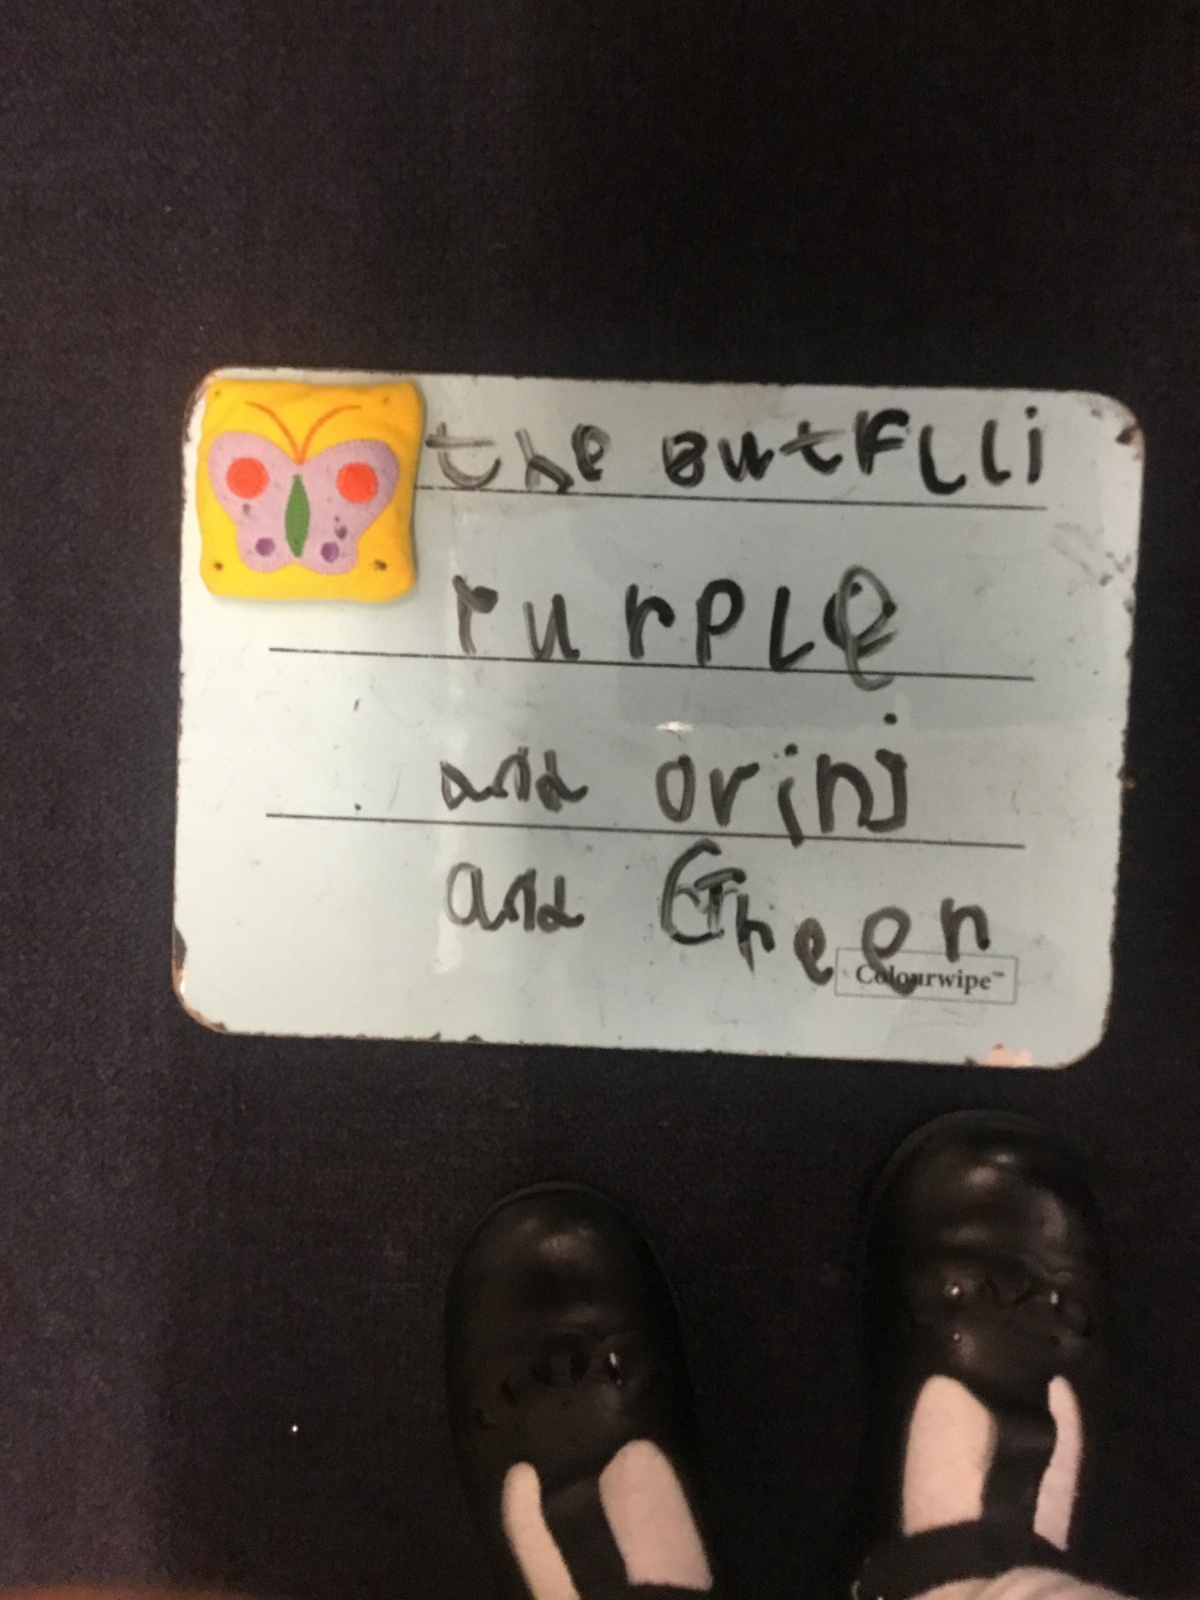 the ButFLLi
PurPLe
and orinj
and Green
Colourwipe™